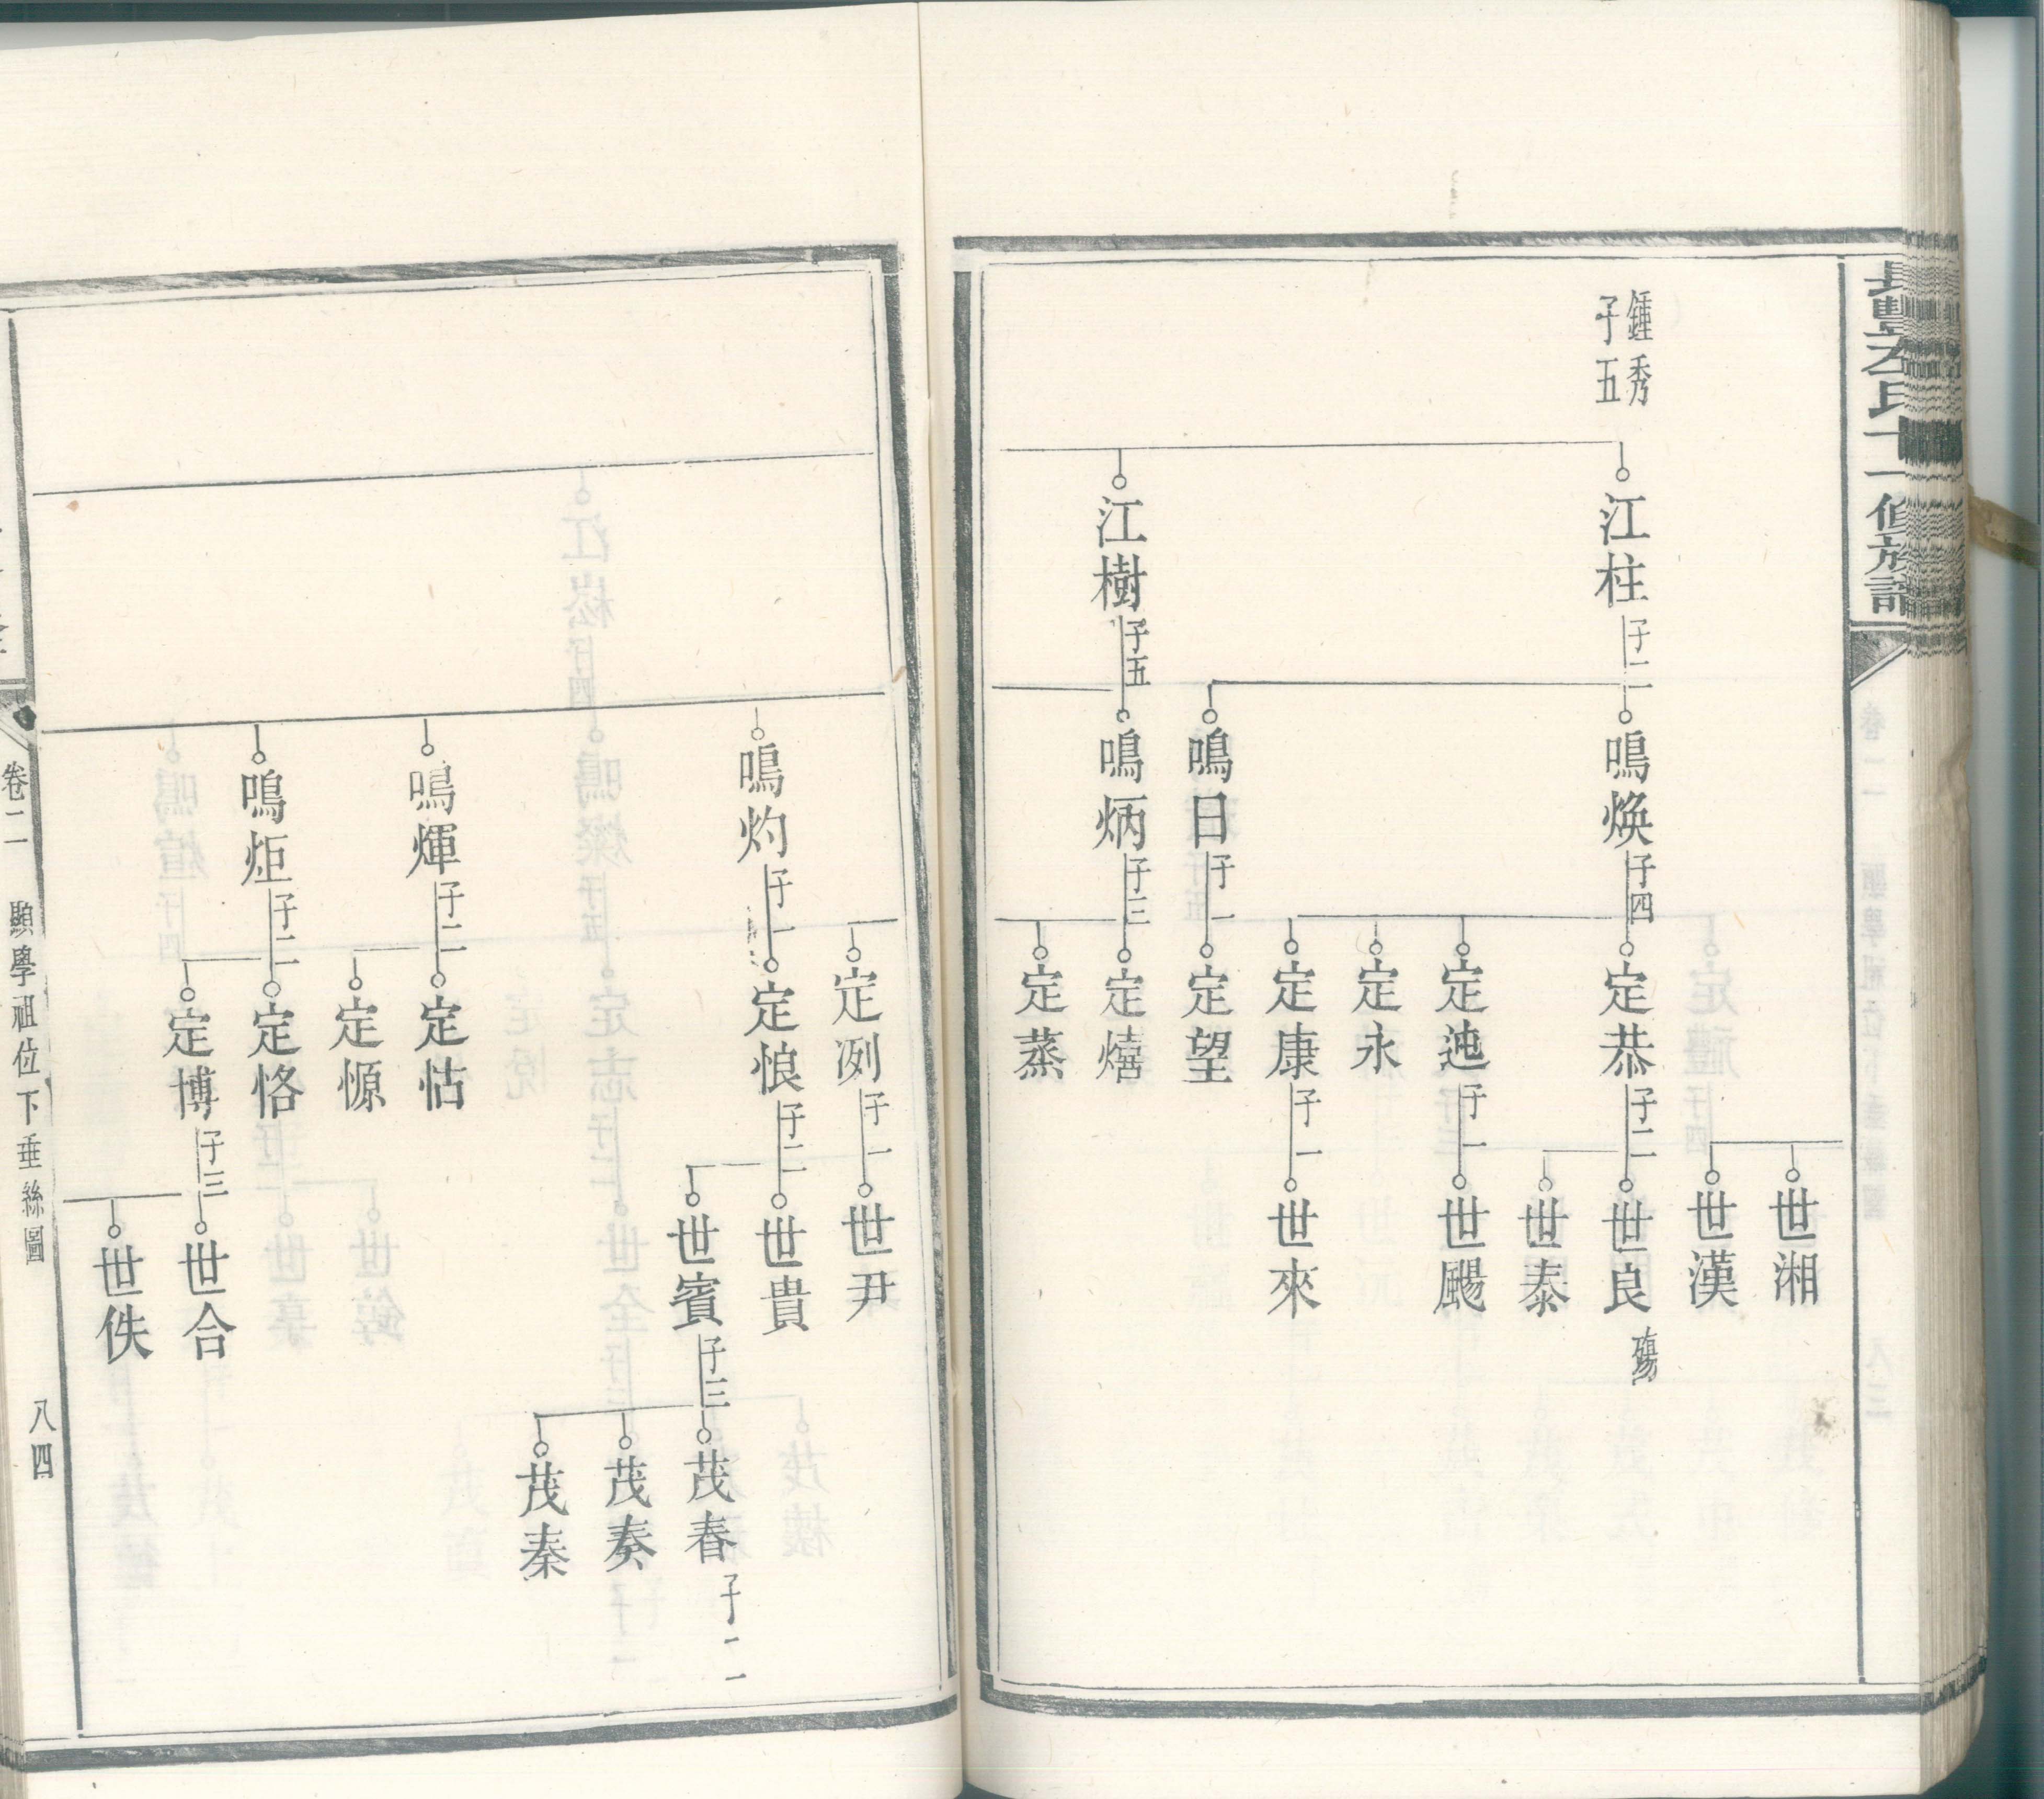 長豐左氏十一修族譜
鍾秀
子五
江柱 子二
江樹 子五
鳴煥 子四
鳴日 子一
鳴炳 子三
世湘
世漢
定恭 子二
定迆 子一
定永
定康 子一
定望
定熺
定蒸
世良 殤
世泰
世颺
世來
鳴灼 子一
鳴煇 子二
鳴炬 子二
定冽 子一
定悢 子二
定怙
定愿
定恪
定博 子三
世尹
世貴
世賓 子三
世合
世佚
茂春 子二
茂奏
茂秦
卷二 顯學祖位下垂絲圖 八四